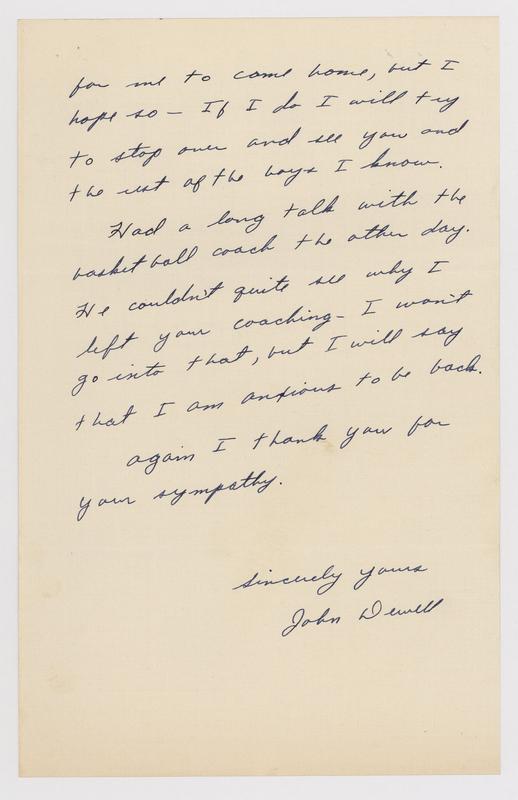 for me to come home, but I
hope so - If I do I will try
to stop over and see you and
the rest of the boys I know.
Had a long talk with the
basketball coach the other day.
He couldn't quite see why I
left your coaching - I won't
go into that, but I will say
that I am anxious to be back.
again I thank you for
your sympathy.
sincerely yours
John Dewell